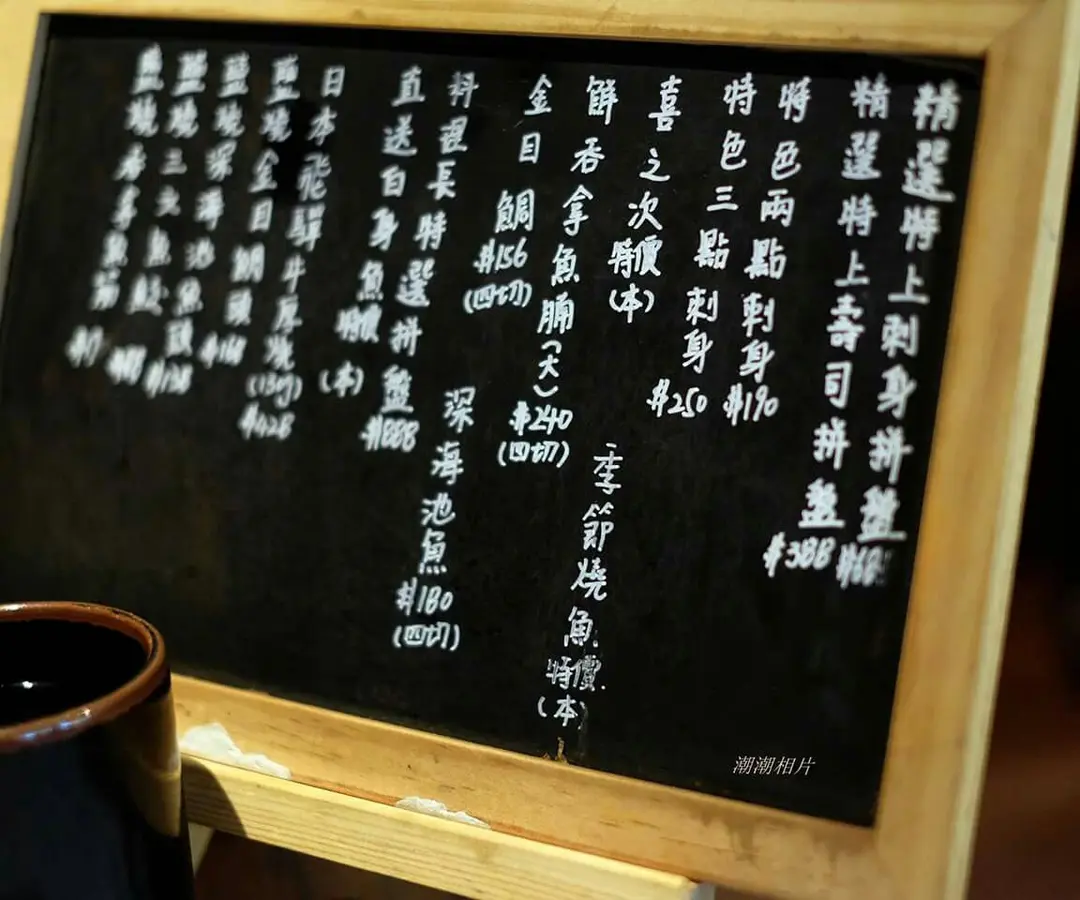 精選特上刺身拼盤 $68
精選特上壽司拼盤 $388
特色兩點刺身 $190
特色三點刺身 $250
喜之次 特價 (本)
鮮吞拿魚腩(大) $240 (四切)
季節燒魚 特價 (本)
金目鯛 $156 (四切)
料理長特選拼盤 $888
深海池魚 $180 (四切)
直送白身魚 特價 (本)
日本飛驒牛厚燒 (130g) $428
鹽燒金目鯛頭 $168
鹽燒深海池魚頭 $138
鹽燒三文魚鮫
鹽燒吞拿魚
潮潮相片